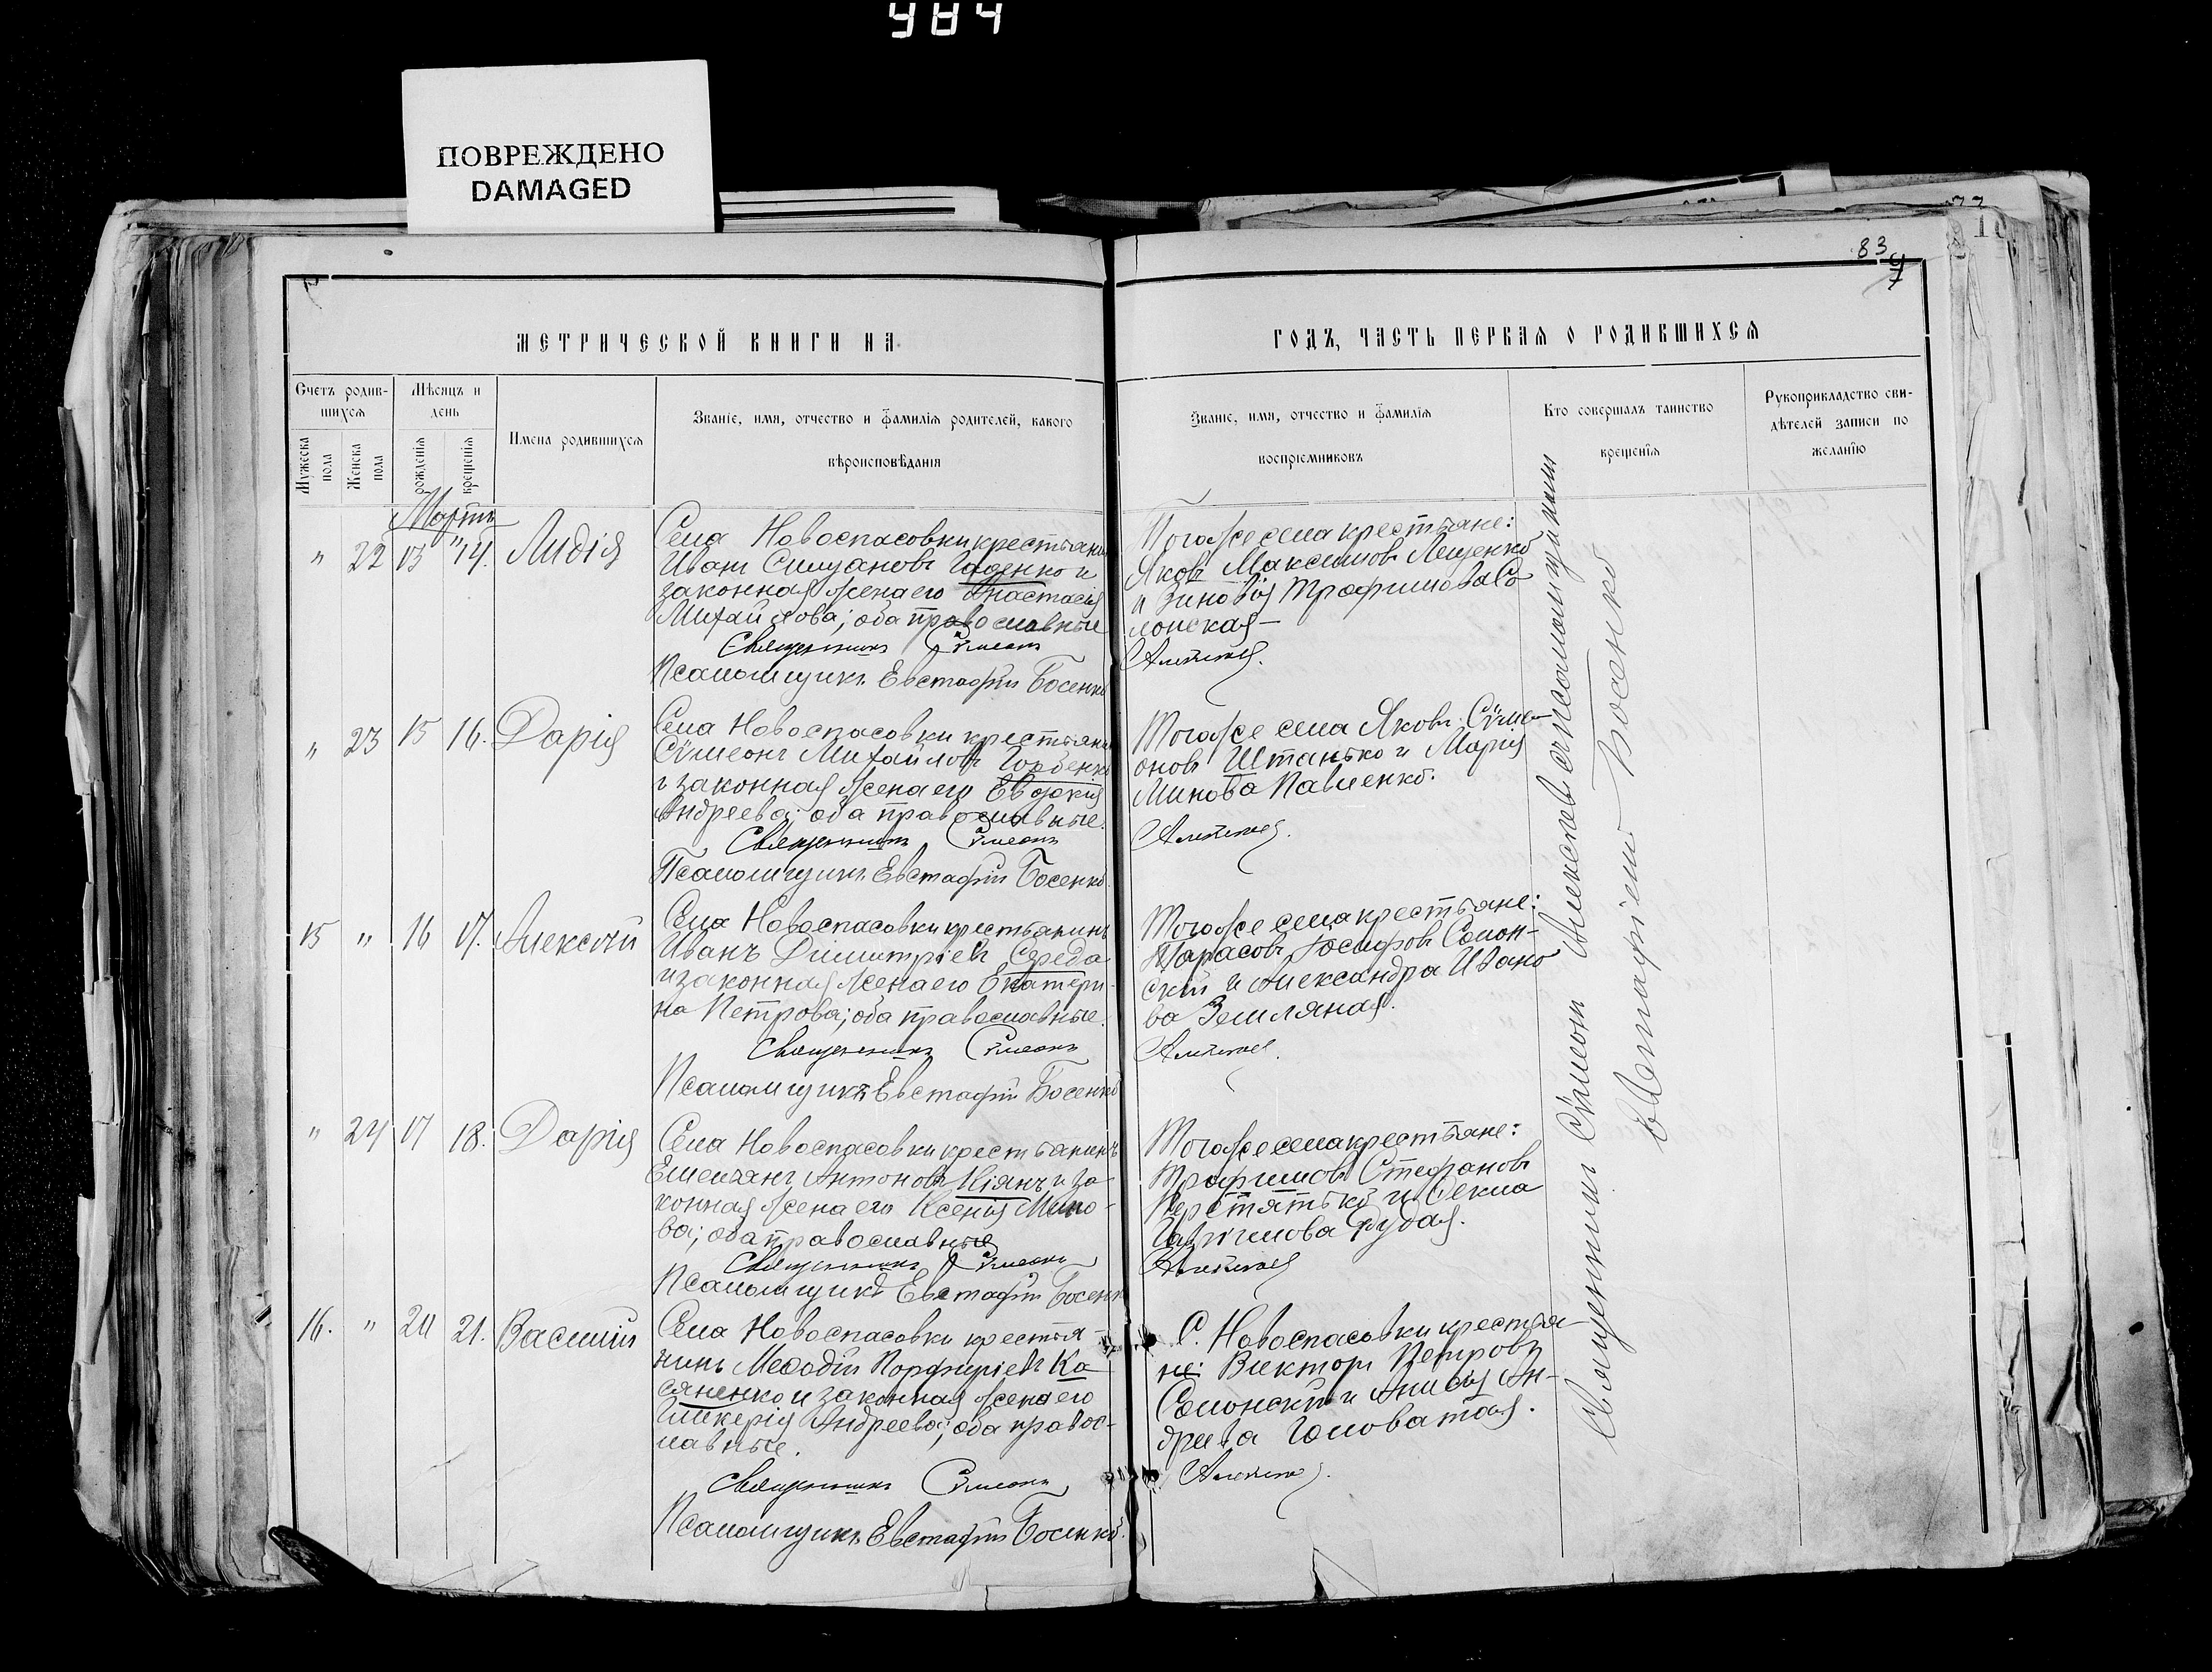 984
ПОВРЕЖДЕНО
DAMAGED
83
МЕТРИЧЕСКОЙ КНИГИ НА
ГОДЪ, ЧАСТЬ ПЕРВАЯ О РОДИВШИХСЯ
Счетъ родив-
шихся
Мужеска
пола
Женска
пола
Мѣсяцъ и
день
рожденія
крещенія
Имена родившихся
Званіе, имя, отчество и фамилія родителей, какого
вѣроисповѣданія
Званіе, имя, отчество и фамилія
воспріемниковъ
Кто совершалъ таинство
крещенія
Рукоприкладство сви-
дѣтелей записи по
желанію
Мартъ
" 22 13 14. Лидія
Села Новоспасовки крестьянинъ
Иванъ Гаденко и
законная жена его Анастасія
Михайлова; оба православные
Священникъ Сѵмеонъ
Псаломщикъ Евстафій Босенко
Тогоже села крестьяне:
Яковъ Максимовъ Лещенко
и Зиновія Трофимова Со
лонская
Алексѣевъ.
" 23 15 16. Дарія
Села Новоспасовки крестьянинъ
Сѵмеонъ Михайловъ Горбенко
и законная жена его Евдокія
Андреева; оба православные.
Священникъ Сѵмеонъ
Псаломщикъ Евстафій Босенко.
Тогоже села Яковъ Сѵме-
оновъ Штанько и Марія
Минова Павленко.
Алексѣевъ.
15 " 16 17. Алексѣй
Села Новоспасовки крестьянинъ
Иванъ Димитріевъ Середа
и законная жена его Екатери-
на Петрова; оба православные.
Священникъ Сѵмеонъ
Псаломщикъ Евстафій Босенко
Тогоже села крестьяне:
Тарасовъ Іосифовъ Солон-
скій и Александра Ивано
ва Земляная.
Алексѣевъ.
" 24 17 18. Дарія
Села Новоспасовки крестьянинъ
Емельянъ Антоновъ Кіянъ и за
конная жена его Ксенія Мино-
ва; оба православные
Священникъ Сѵмеонъ
Псаломщикъ Евстафій Босенко
Тогоже села крестьяне:
Трофимовъ Стефановъ
Перстятько и Ѳекла
Рудая.
Алексѣевъ
16. " 20 21. Василій
Села Новоспасовки крестья-
нинъ Меѳодій Порфиріевъ Ка
сяненко и законная жена его
Гликерія Андреева; оба правос-
лавные.
Священникъ Сѵмеонъ
Псаломщикъ Евстафій Босенко.
С. Новоспасовки крестья-
не: Викторъ Петровъ
Солонскій и Анисія Ан-
дреева Головатая.
Алексѣевъ.
Священникъ Сѵмеонъ Алексѣевъ съ псаломщикомъ
Евстафіемъ Босенко